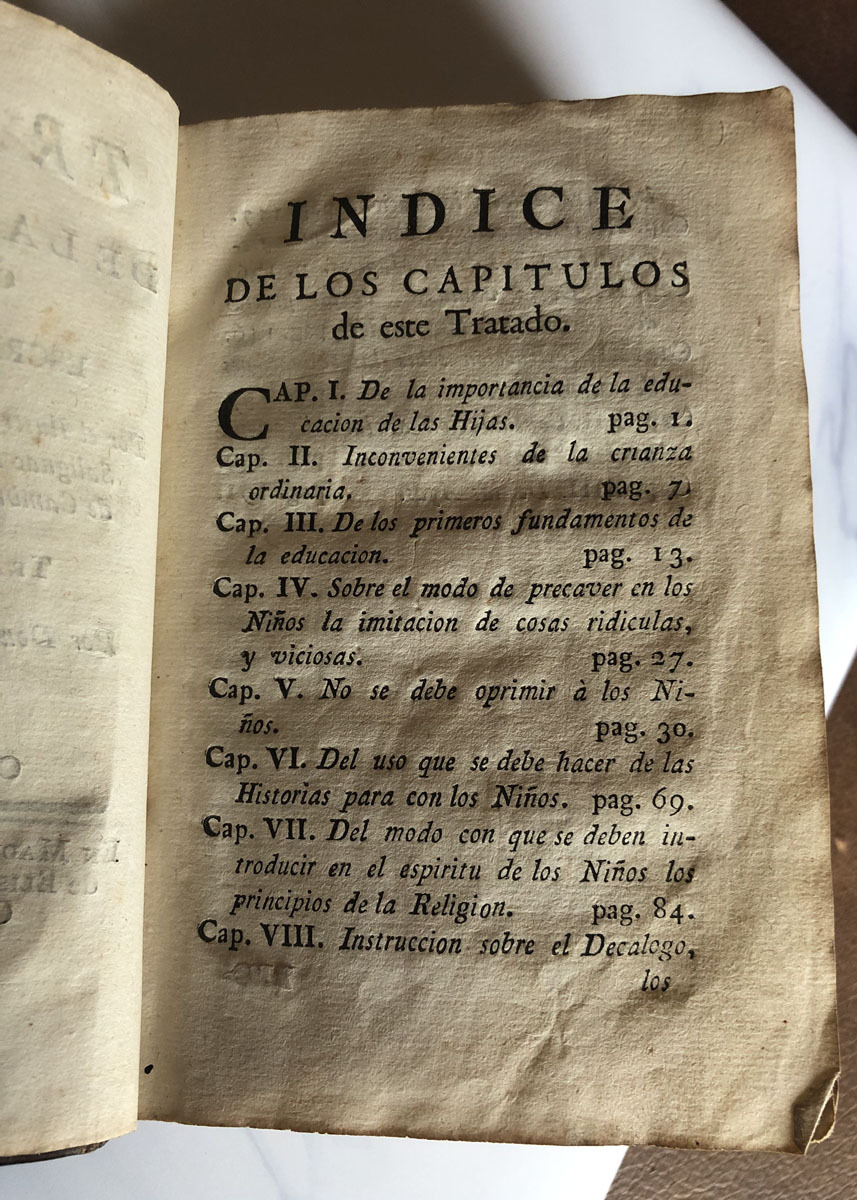 INDICE
DE LOS CAPITULOS
de este Tratado.
CAP. I. De la importancia de la edu-
cacion de las Hijas. pag. 1.
Cap. II. Inconvenientes de la crianza
ordinaria. pag. 7.
Cap. III. De los primeros fundamentos de
la educacion. pag. 13.
Cap. IV. Sobre el modo de precaver en los
Niños la imitacion de cosas ridiculas,
y viciosas. pag. 27.
Cap. V. No se debe oprimir à los Ni-
ños. pag. 30.
Cap. VI. Del uso que se debe hacer de las
Historias para con los Niños. pag. 69.
Cap. VII. Del modo con que se deben in-
troducir en el espiritu de los Niños los
principios de la Religion. pag. 84.
Cap. VIII. Instruccion sobre el Decalogo,
los